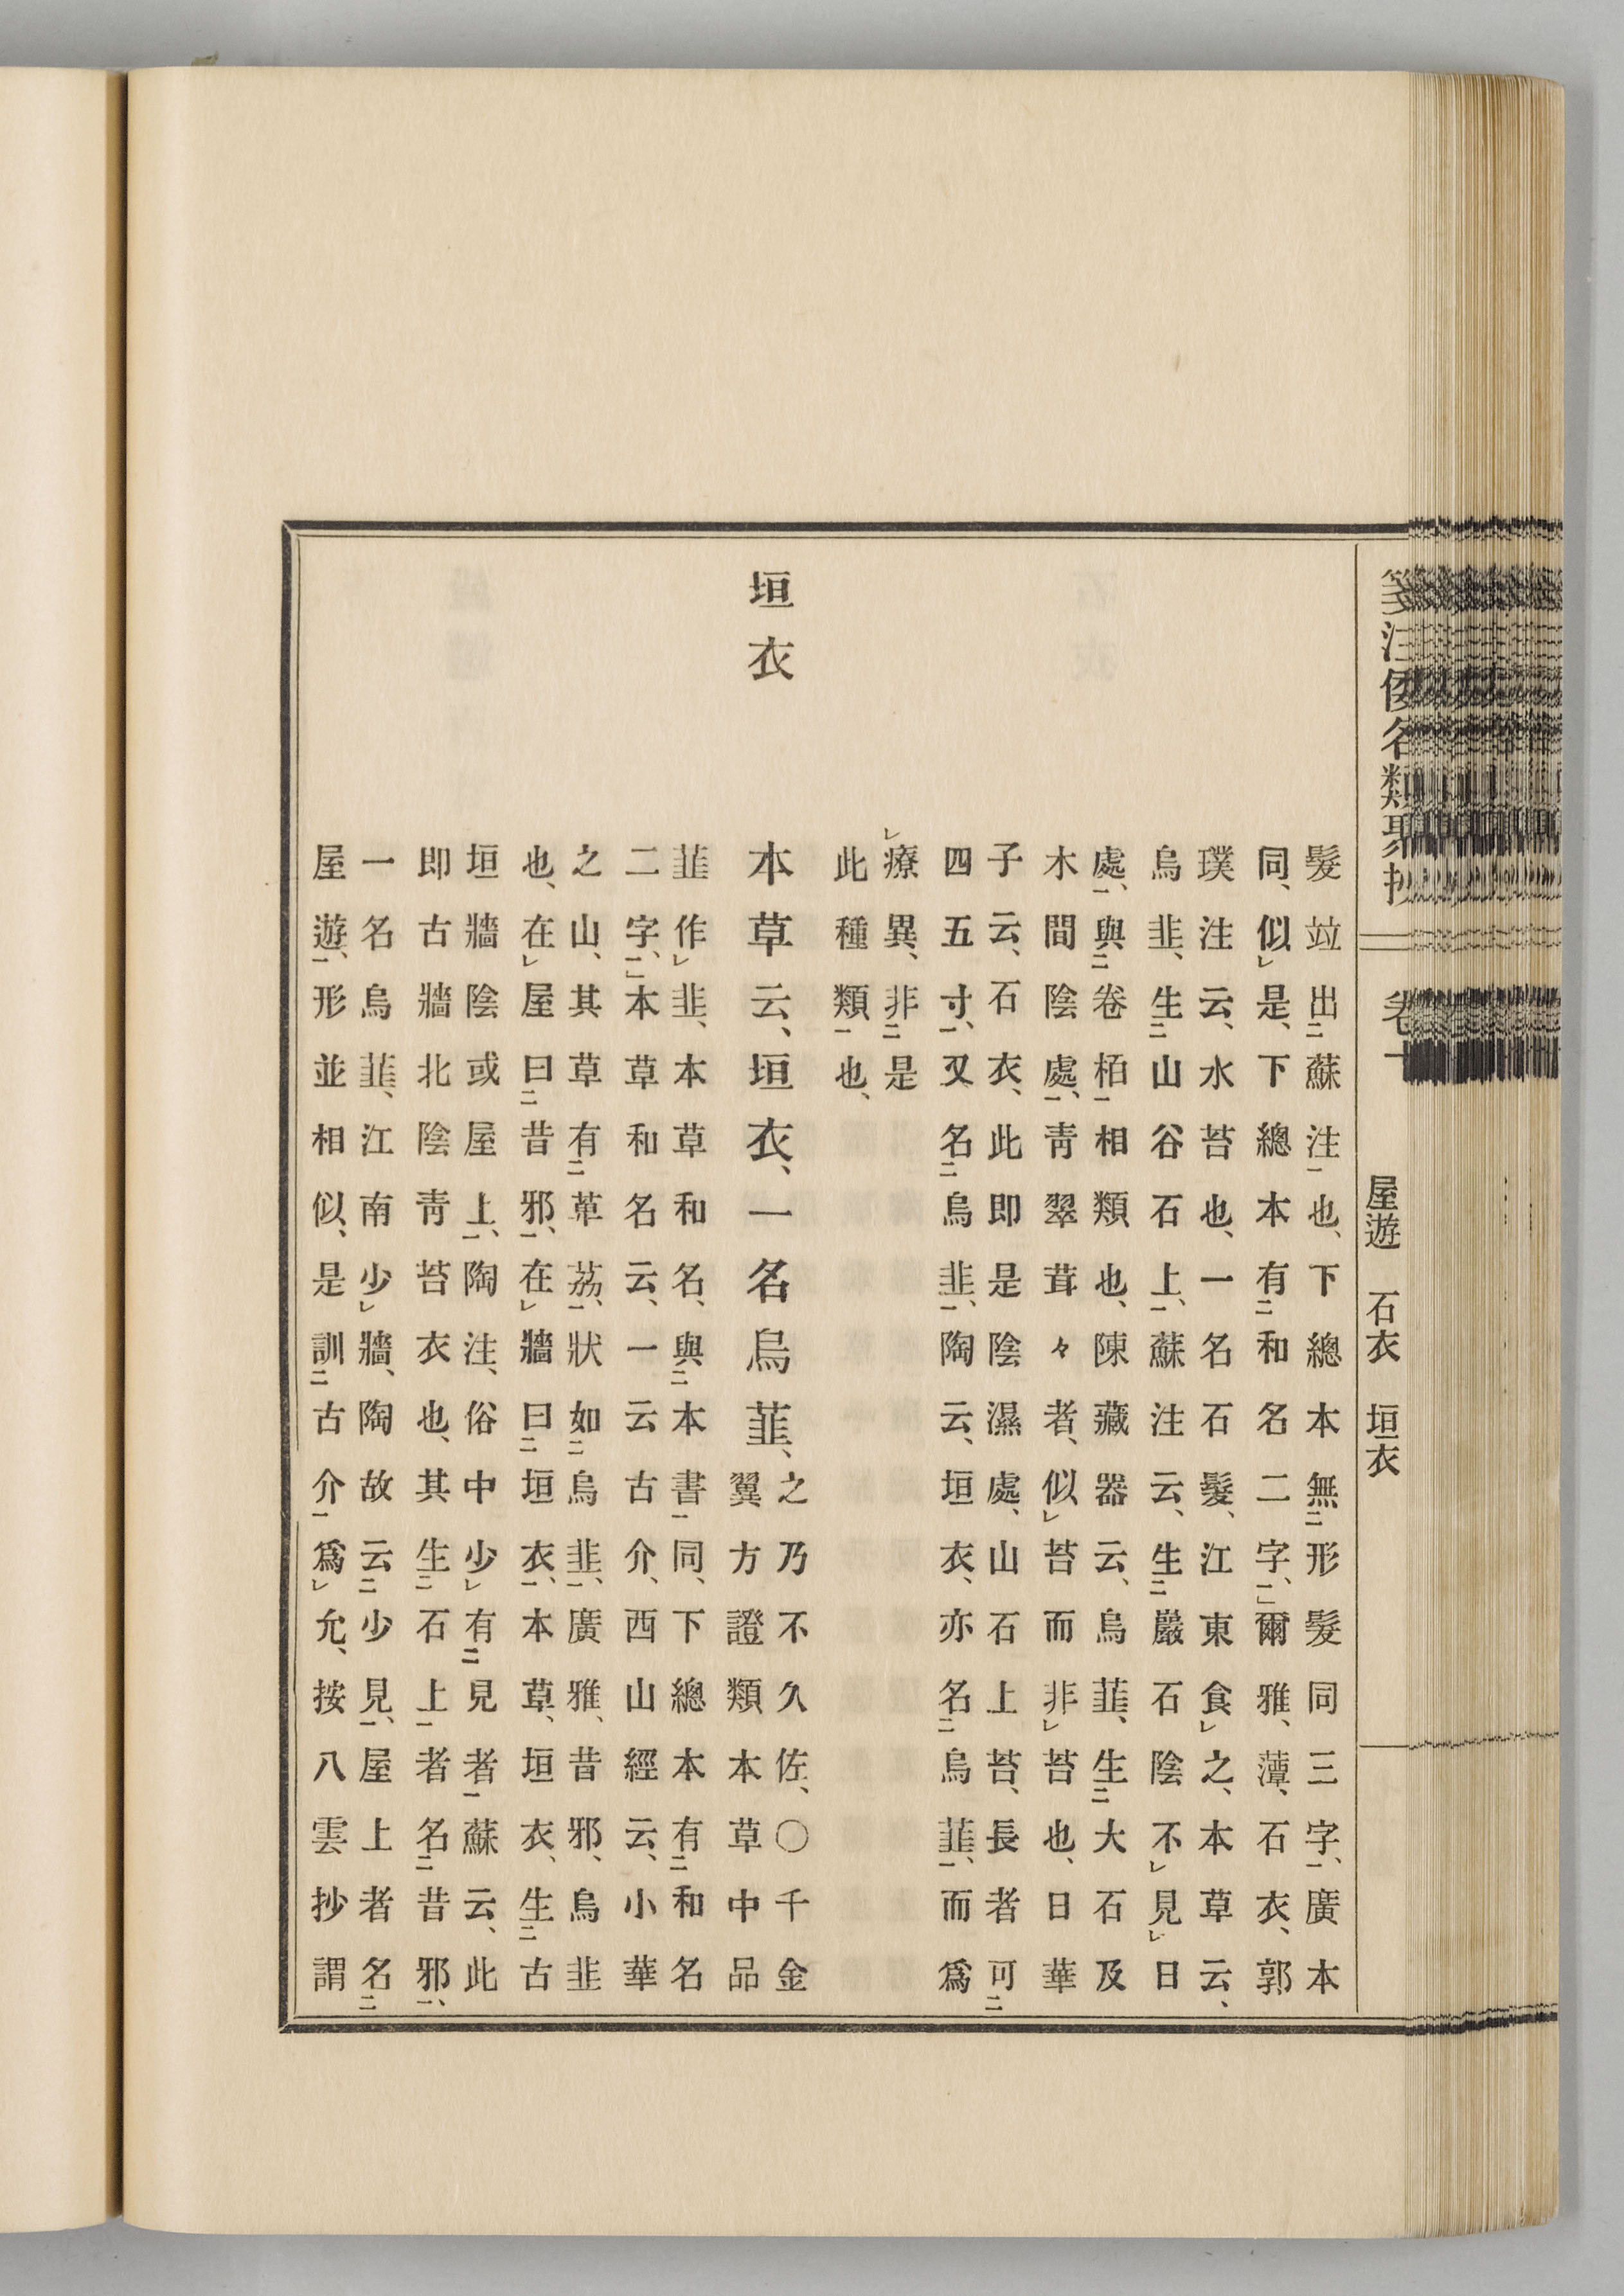 箋注倭名類聚抄 卷十 屋遊 石衣 垣衣
髮竝出㆓蘇注㆒也、下總本無㆓形髮同三字㆒、廣本
同、似㆑是、下總本有㆓和名二字㆒、爾雅、藫、石衣、郭
璞注云、水苔也、一名石髮、江東食㆑之、本草云、
烏韭、生㆓山谷石上㆒、蘇注云、生㆓巖石陰不㆑見㆑日
處㆒、與㆓卷栢㆒相類也、陳藏器云、烏韮、生㆓大石及
木間陰處㆒、青翠茸々者、似㆑苔而非㆑苔也、日華
子云、石衣、此即是陰濕處、山石上苔、長者可㆓
四五寸㆒、又名㆓烏韭㆒、陶云、垣衣、亦名㆓烏韮㆒、而爲
㆑療異、非㆓是
此種類㆒也、
垣衣
本草云、垣衣、一名烏韮、
之乃不久佐、○千金
翼方證類本草中品
韮作㆑韭、本草和名、與㆓本書㆒同、下總本有㆓和名
二字㆒、本草和名云、一云古介、西山經云、小華
之山、其草有㆓萆荔㆒、狀如㆓烏韭㆒、廣雅、昔邪、烏韭
也、在㆑屋曰㆓昔邪㆒、在㆑牆曰㆓垣衣㆒、本草、垣衣、生㆓古
垣牆陰或屋上㆒、陶注、俗中少㆑有㆓見者㆒蘇云、此
即古牆北陰青苔衣也、其生㆓石上㆒者名㆓昔邪㆒、
一名烏韮、江南少㆑牆、陶故云㆓少見㆒、屋上者名㆓
屋遊㆒、形並相似、是訓㆓古介㆒爲㆑允、按八雲抄謂